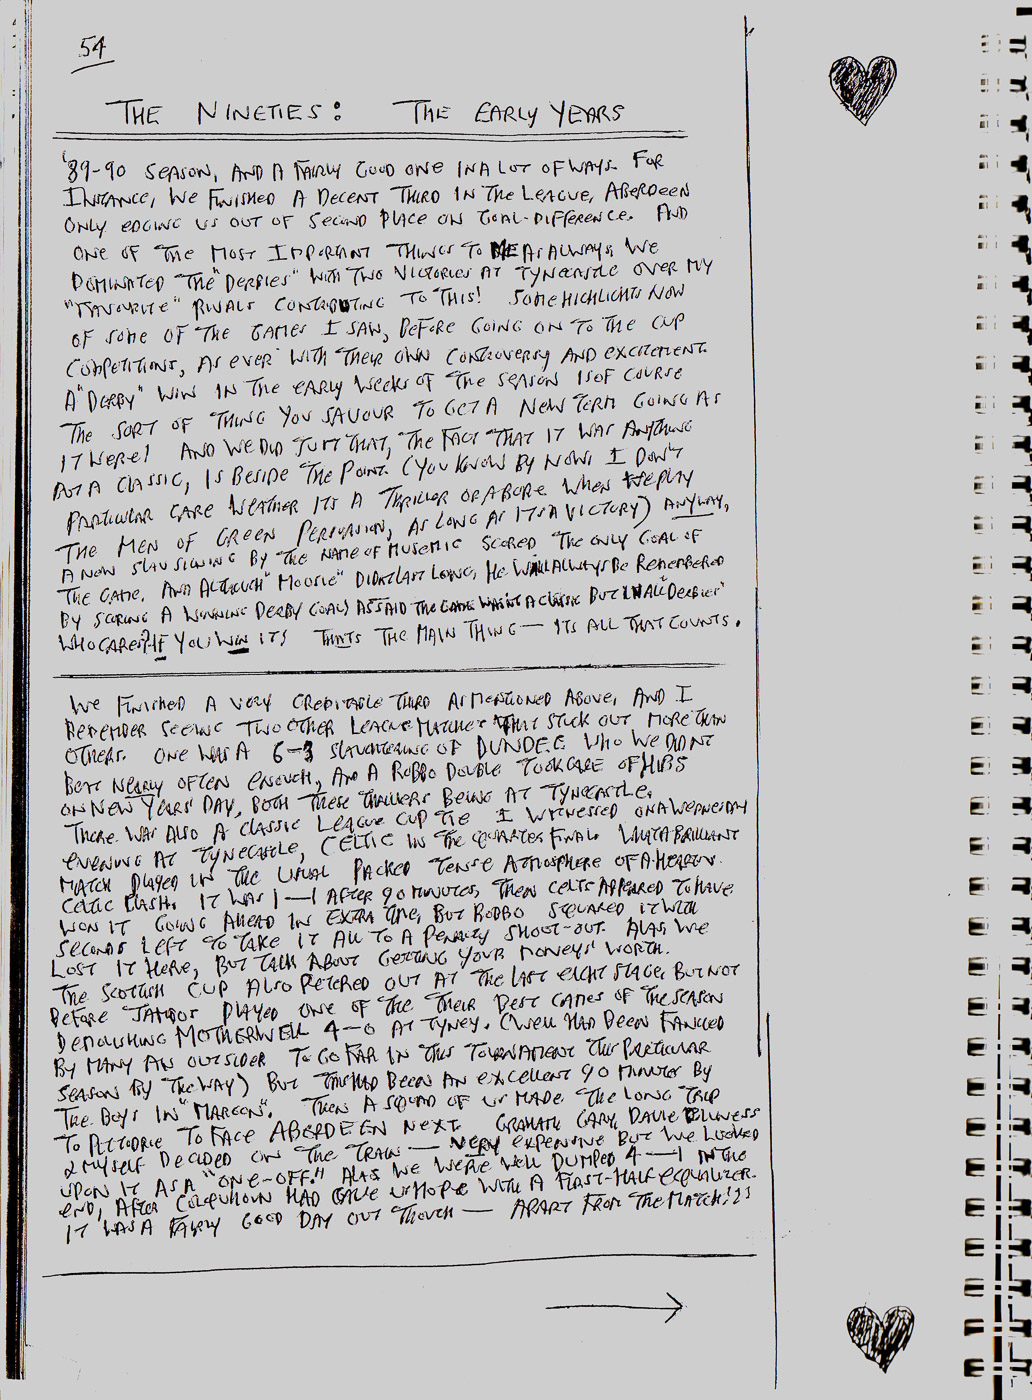 54
THE NINETIES: THE EARLY YEARS
'89-90 SEASON, AND A FAIRLY GOOD ONE IN A LOT OF WAYS. FOR
INSTANCE, WE FINISHED A DECENT THIRD IN THE LEAGUE, ABERDEEN
ONLY EDGING US OUT OF SECOND PLACE ON GOAL-DIFFERENCE. AND
ONE OF THE MOST IMPORTANT THINGS TO ME AS ALWAYS, WE
DOMINATED THE "DERBIES" WITH TWO VICTORIES AT TYNECASTLE OVER MY
"FAVOURITE" RIVALS CONTRIBUTING TO THIS! SOME HIGHLIGHTS NOW
OF SOME OF THE GAMES I SAW, BEFORE GOING ON TO THE CUP
COMPETITIONS, AS EVER WITH THEIR OWN CONTROVERSY AND EXCITEMENT.
A "DERBY" WIN IN THE EARLY WEEKS OF THE SEASON IS OF COURSE
THE SORT OF THING YOU SAVOUR TO GET A NEW TERM GOING AS
IT WERE! AND WE DID JUST THAT, THE FACT THAT IT WAS ANYTHING
BUT A CLASSIC, IS BESIDE THE POINT. (YOU KNOW BY NOW I DON'T
PARTICULAR CARE WEATHER ITS A THRILLER OR A BORE WHEN WE PLAY
THE MEN OF GREEN PERSUASION, AS LONG AS ITS A VICTORY) ANYWAY,
A NEW SLAV SIGNING BY THE NAME OF MUSEMIC SCORED THE ONLY GOAL OF
THE GAME. AND ALTHOUGH "MOOSIE" DIDN'T LAST LONG, HE WILL ALWAYS BE REMEMBERED
BY SCORING A WINNING DERBY GOAL! AS SAID THE GAME WASN'T A CLASSIC BUT IN ALL "DERBIES"
WHO CARES? IF YOU WIN ITS THATS THE MAIN THING — ITS ALL THAT COUNTS.
WE FINISHED A VERY CREDITABLE THIRD AS MENTIONED ABOVE, AND I
REMEMBER SEEING TWO OTHER LEAGUE MATCHES THAT STICK OUT MORE THAN
OTHERS. ONE WAS A 6-3 SLAUGHTERING OF DUNDEE WHO WE DIDN'T
BEAT NEARLY OFTEN ENOUGH, AND A ROBBO DOUBLE TOOK CARE OF HIBS
ON NEW YEARS' DAY, BOTH THESE THRILLERS BEING AT TYNECASTLE.
THERE WAS ALSO A CLASSIC LEAGUE CUP TIE I WITNESSED ON A WEDNESDAY
EVENING AT TYNECASTLE, CELTIC IN THE QUARTER FINAL. WHAT A BRILLIANT
MATCH PLAYED IN THE USUAL PACKED TENSE ATMOSPHERE OF A HEARTS
CELTIC CLASH. IT WAS 1—1 AFTER 90 MINUTES, THEN CELTS APPEARED TO HAVE
WON IT GOING AHEAD IN EXTRA TIME, BUT ROBBO SQUARED IT WITH
SECONDS LEFT TO TAKE IT ALL TO A PENALTY SHOOT-OUT. ALAS WE
LOST IT HERE, BUT TALK ABOUT GETTING YOUR MONEYS' WORTH.
THE SCOTTISH CUP ALSO PETERED OUT AT THE LAST EIGHT STAGE. BUT NOT
BEFORE JAMBOS PLAYED ONE OF THE THEIR BEST GAMES OF THE SEASON
DEMOLISHING MOTHERWELL 4—0 AT TYNEY. (WELL HAD BEEN FANCIED
BY MANY AN OUTSIDER TO GO FAR IN THIS TOURNAMENT THIS PARTICULAR
SEASON BY THE WAY) BUT THIS HAD BEEN AN EXCELLENT 90 MINUTES BY
THE BOYS IN "MAROON". THEN A SQUAD OF US MADE THE LONG TRIP
TO PITTODRIE TO FACE ABERDEEN NEXT. GRAHAM, GARY, DAVIE
& MYSELF DECIDED ON THE TRAIN — VERY EXPENSIVE BUT WE LOOKED
UPON IT AS A "ONE-OFF." ALAS WE WERE WELL DUMPED 4—1 IN THE
END, AFTER COLQUHOUN HAD GAVE US HOPE WITH A FIRST-HALF EQUALIZER.
IT WAS A FAIRLY GOOD DAY OUT THOUGH — APART FROM THE MATCH!